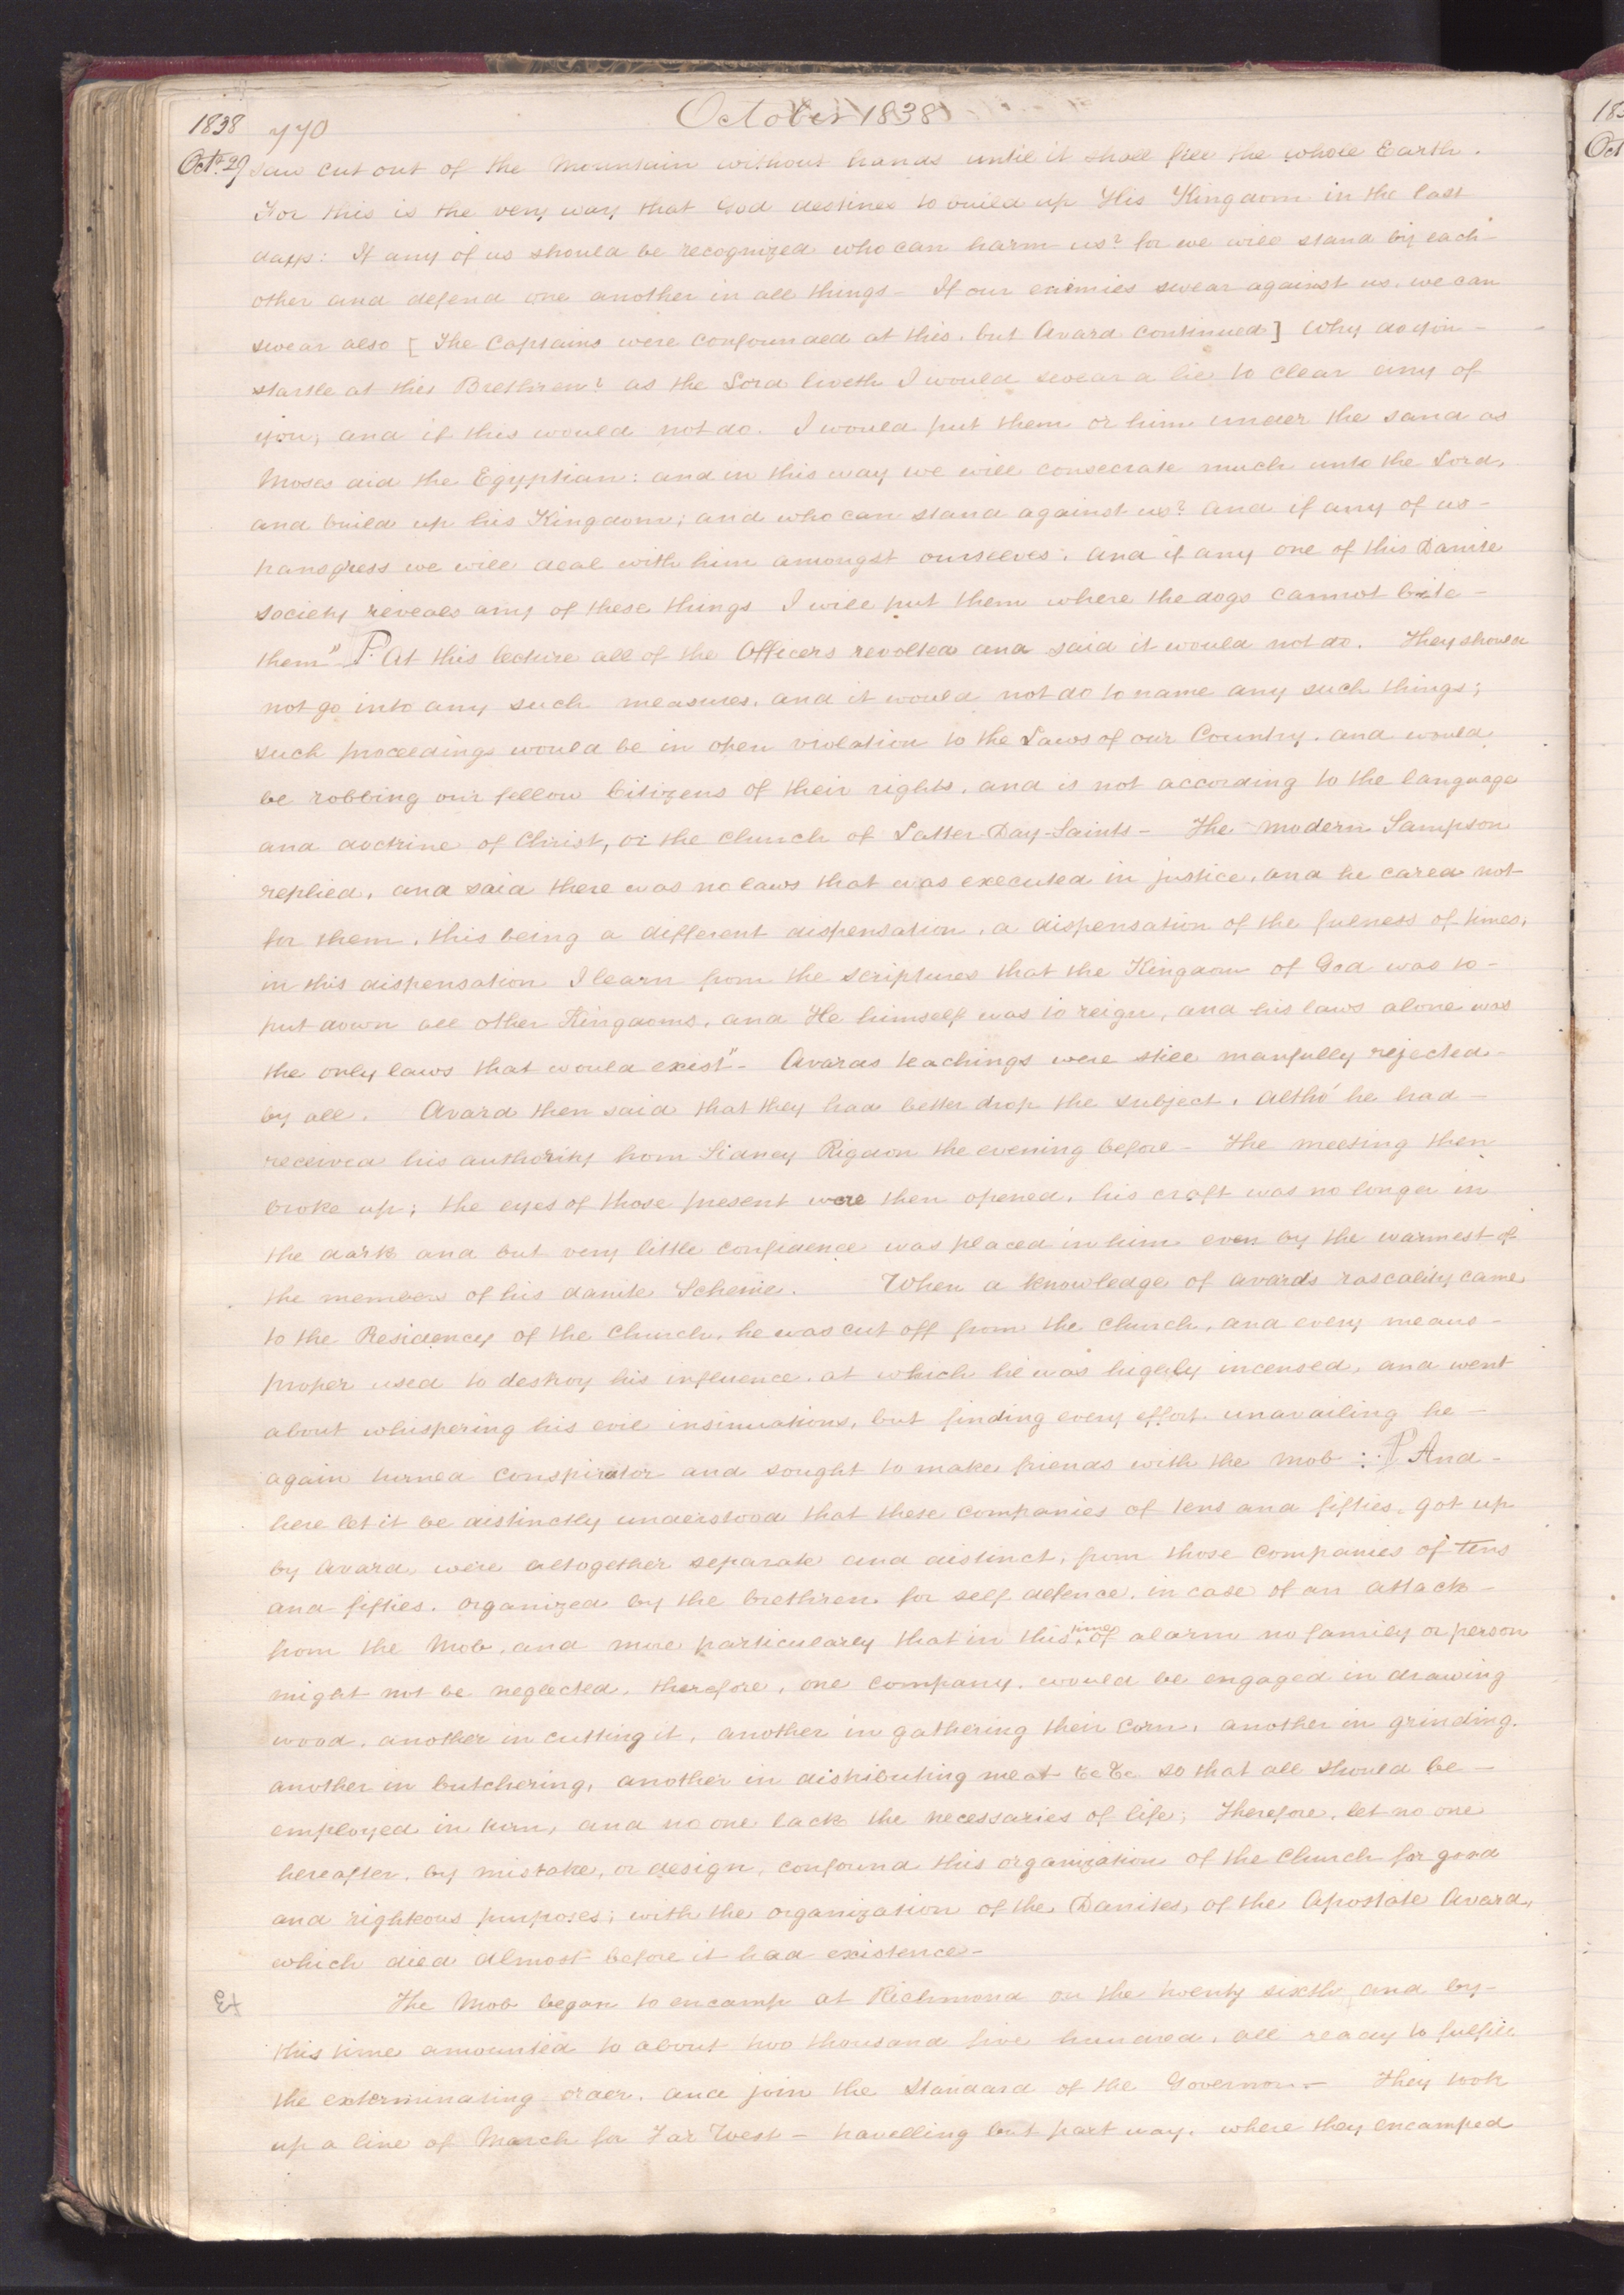 October 1838
1838 770
Octr. 29 saw cut out of the Mountain without hands until it shall fill the whole Earth.
For this is the very way that God destines to build up His Kingdom in the last
days: If any of us should be recognized who can harm us? for we will stand by each
other and defend one another in all things – If our enimies swear against us, we can
swear also [The Captains were confounded at this, but Avard continued] Why do you –
startle at this Brethren? as the Lord liveth I would swear a lie to clear any of
you; and if this would not do. I would put them or him under the sand as
Moses did the Egyptian: and in this way we will consecrate much unto the Lord,
and build up his Kingdom; and who can stand against us? And if any of us –
transgress we will deal with him amongst ourselves: and if any one of this Danite
society reveals any of these things I will put them where the dogs cannot bite –
them" P. At this lecture all of the Officers revolted and said it would not do. They should
not go into any such measures, and it would not do to name any such things;
such proceedings would be in open violation to the Laws of our Country, and would
be robbing our fellow Citizens of their rights, and is not according to the language
and doctrine of Christ, or the Church of Latter-Day-Saints – The modern Sampson
replied, and said there was no laws that was executed in justice, and he cared not
for them, this being a different dispensation, a dispensation of the fulness of times;
in this dispensation I learn from the scriptures that the Kingdom of God was to –
put down all other Kingdoms, and He himself was to reign, and his laws alone was
the only laws that would exist" – Avards teachings were still manfully rejected –
by all. Avard then said that they had better drop the subject, altho' he had –
received his authority from Sidney Rigdon the evening before – The meeting then
broke up; the eyes of those present were then opened, his craft was no longer in
the dark and but very little confidence was placed in him even by the warmest of
the members of his danite Scheme. When a knowledge of avards rascality came
to the Residency of the Church, he was cut off from the church, and every means –
proper used to destroy his influence, at which he was highly incensed, and went
about whispering his evil insinuations, but finding every effort unavailing he –
again turned conspirator and sought to make friends with the mob :. P And –
here let it be distinctly understood that these companies of tens and fifties, got up
by Avard, were altogether separate and distinct, from those companies of tens
and fifties, organized by the brethren for self defence, in case of an attack –
from the Mob, and more particularly that in this time of alarm no family or person
might not be neglected, therefore, one company, would be engaged in drawing
wood, another in cutting it, another in gathering their corn, another in grinding,
another in butchering, another in distributing meat &c &c so that all should be –
employed in turn, and no one lack the necessaries of life; Therefore, let no one
hereafter, by mistake, or design, confound this organization of the Church for good
and righteous purposes; with the organization of the Danites, of the Apostate Avard,
which died almost before it had existence –
The Mob began to encamp at Richmond on the twenty sixth and by –
this time amounted to about two thousand five hundred, all ready to fulfill
the exterminating order, and join the standard of the Governor. – They took
up a line of March for Far West – travelling but part way, where they encamped